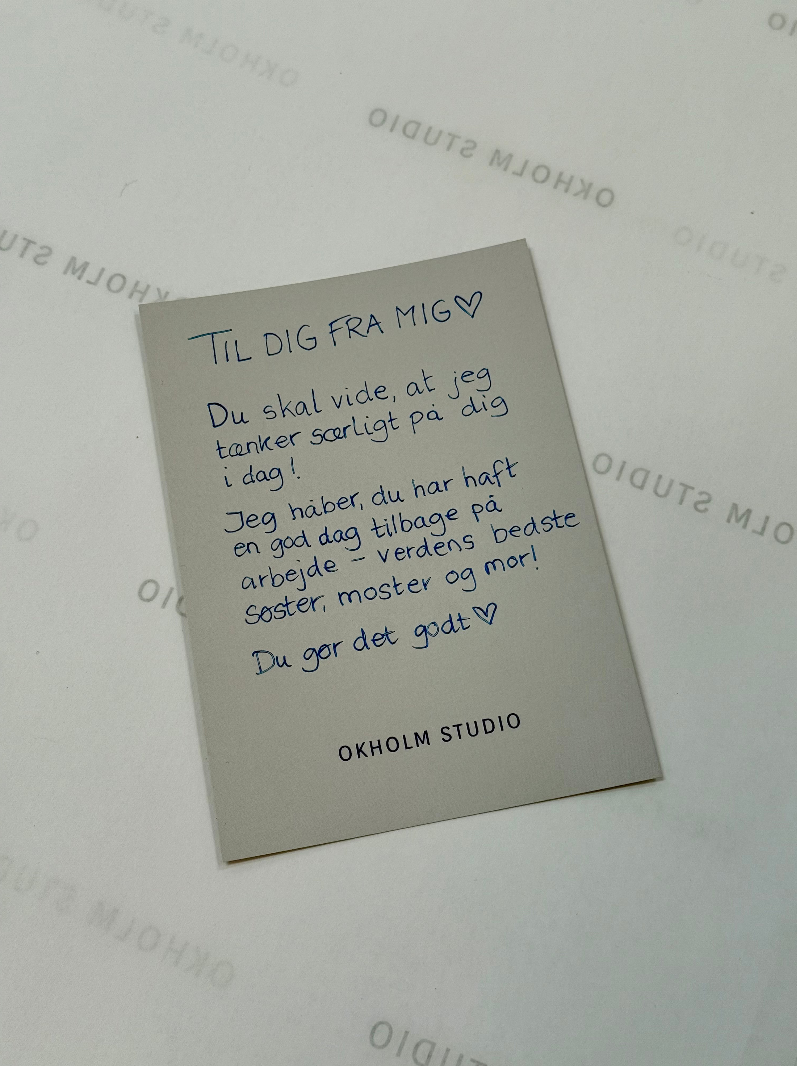 TIL DIG FRA MIG♡
Du skal vide, at jeg
tænker særligt på dig
i dag!
Jeg håber, du har haft
en god dag tilbage på
arbejde – verdens bedste
søster, moster og mor!
Du gør det godt♡
OKHOLM STUDIO
OKHOLM STUDIO
OKHOLM STUDIO
OKHOLM STUDIO